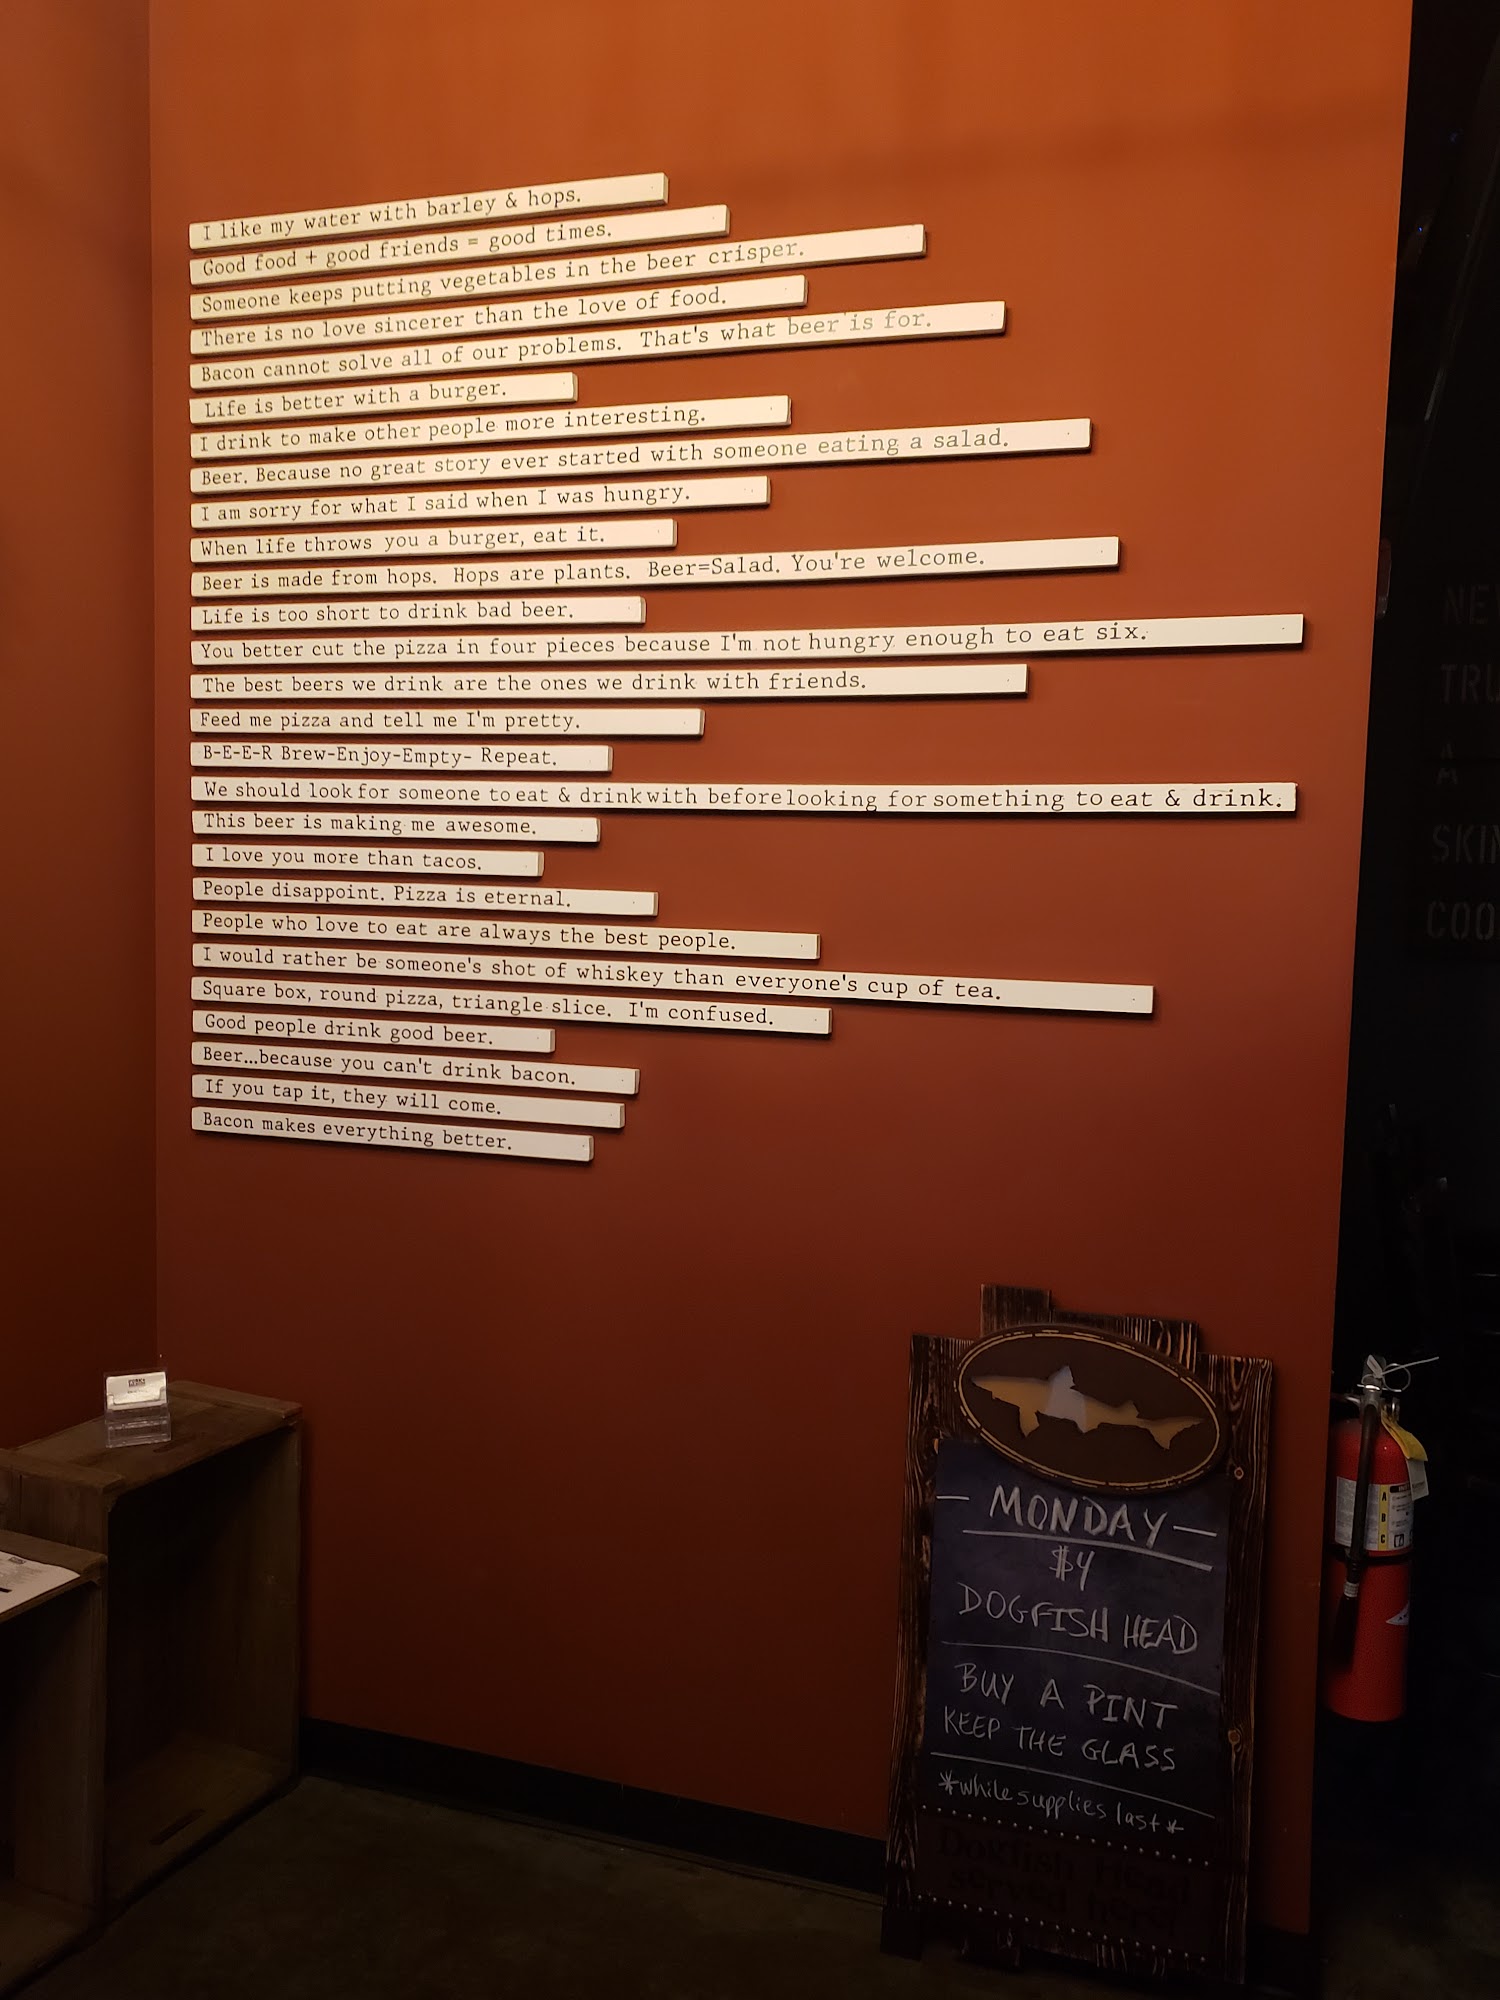 I like my water with barley & hops.
Good food + good friends = good times.
Someone keeps putting vegetables in the beer crisper.
There is no love sincerer than the love of food.
Bacon cannot solve all of our problems. That's what beer is for.
Life is better with a burger.
I drink to make other people more interesting.
Beer. Because no great story ever started with someone eating a salad.
I am sorry for what I said when I was hungry.
When life throws you a burger, eat it.
Beer is made from hops. Hops are plants. Beer=Salad. You're welcome.
Life is too short to drink bad beer.
You better cut the pizza in four pieces because I'm not hungry enough to eat six.
The best beers we drink are the ones we drink with friends.
Feed me pizza and tell me I'm pretty.
B-E-E-R Brew-Enjoy-Empty- Repeat.
We should look for someone to eat & drink with before looking for something to eat & drink.
This beer is making me awesome.
I love you more than tacos.
People disappoint. Pizza is eternal.
People who love to eat are always the best people.
I would rather be someone's shot of whiskey than everyone's cup of tea.
Square box, round pizza, triangle slice. I'm confused.
Good people drink good beer.
Beer...because you can't drink bacon.
If you tap it, they will come.
Bacon makes everything better.
— MONDAY —
$4
DOGFISH HEAD
BUY A PINT
KEEP THE GLASS
*while supplies last*
Dogfish Head
served here
A
B
C